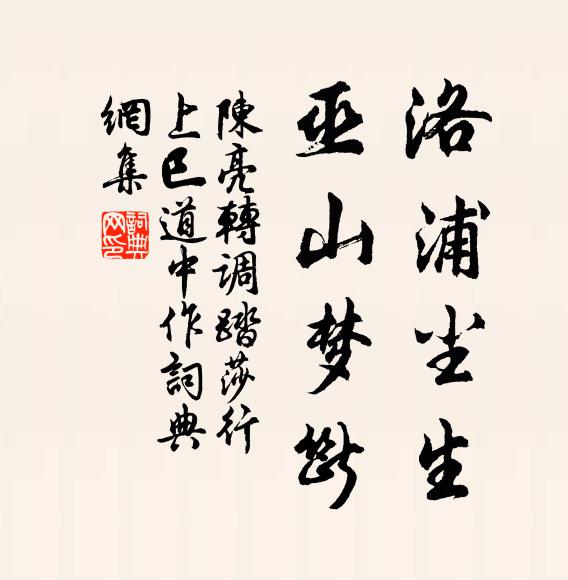 洛浦尘生
巫山梦断
陳亮轉調踏莎行
上巳道中作詞典
網集
詞典
网印